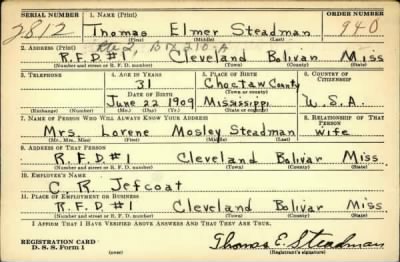 SERIAL NUMBER 1. NAME (Print) ORDER NUMBER
2812 Thomas Elmer Steadman 940
(First) (Middle) (Last)
2. ADDRESS (Print) Rt 2, BX 210-A
R.F.D. #1 Cleveland Bolivar Miss
(Number and street or R. F. D. number) (Town) (County) (State)
3. TELEPHONE 4. AGE IN YEARS 5. PLACE OF BIRTH 6. COUNTRY OF CITIZENSHIP
31 Choctaw County
DATE OF BIRTH (Town or county)
June 22 1909 Mississippi U.S.A.
(Exchange) (Number) (Mo.) (Day) (Yr.) (State or country)
7. NAME OF PERSON WHO WILL ALWAYS KNOW YOUR ADDRESS 8. RELATIONSHIP OF THAT PERSON
Mrs Lorene Mosley Steadman wife
(Mr., Mrs., Miss) (First) (Middle) (Last)
9. ADDRESS OF THAT PERSON
R.F.D. #1 Cleveland Bolivar Miss
(Number and street or R. F. D. number) (Town) (County) (State)
10. EMPLOYER'S NAME
C. R. Jefcoat
11. PLACE OF EMPLOYMENT OR BUSINESS
R.F.D. #1 Cleveland Bolivar Miss
(Number and street or R. F. D. number) (Town) (County) (State)
I AFFIRM THAT I HAVE VERIFIED ABOVE ANSWERS AND THAT THEY ARE TRUE.
REGISTRATION CARD
D. S. S. Form 1 (over) Thomas E. Steadman
(Registrant's signature)